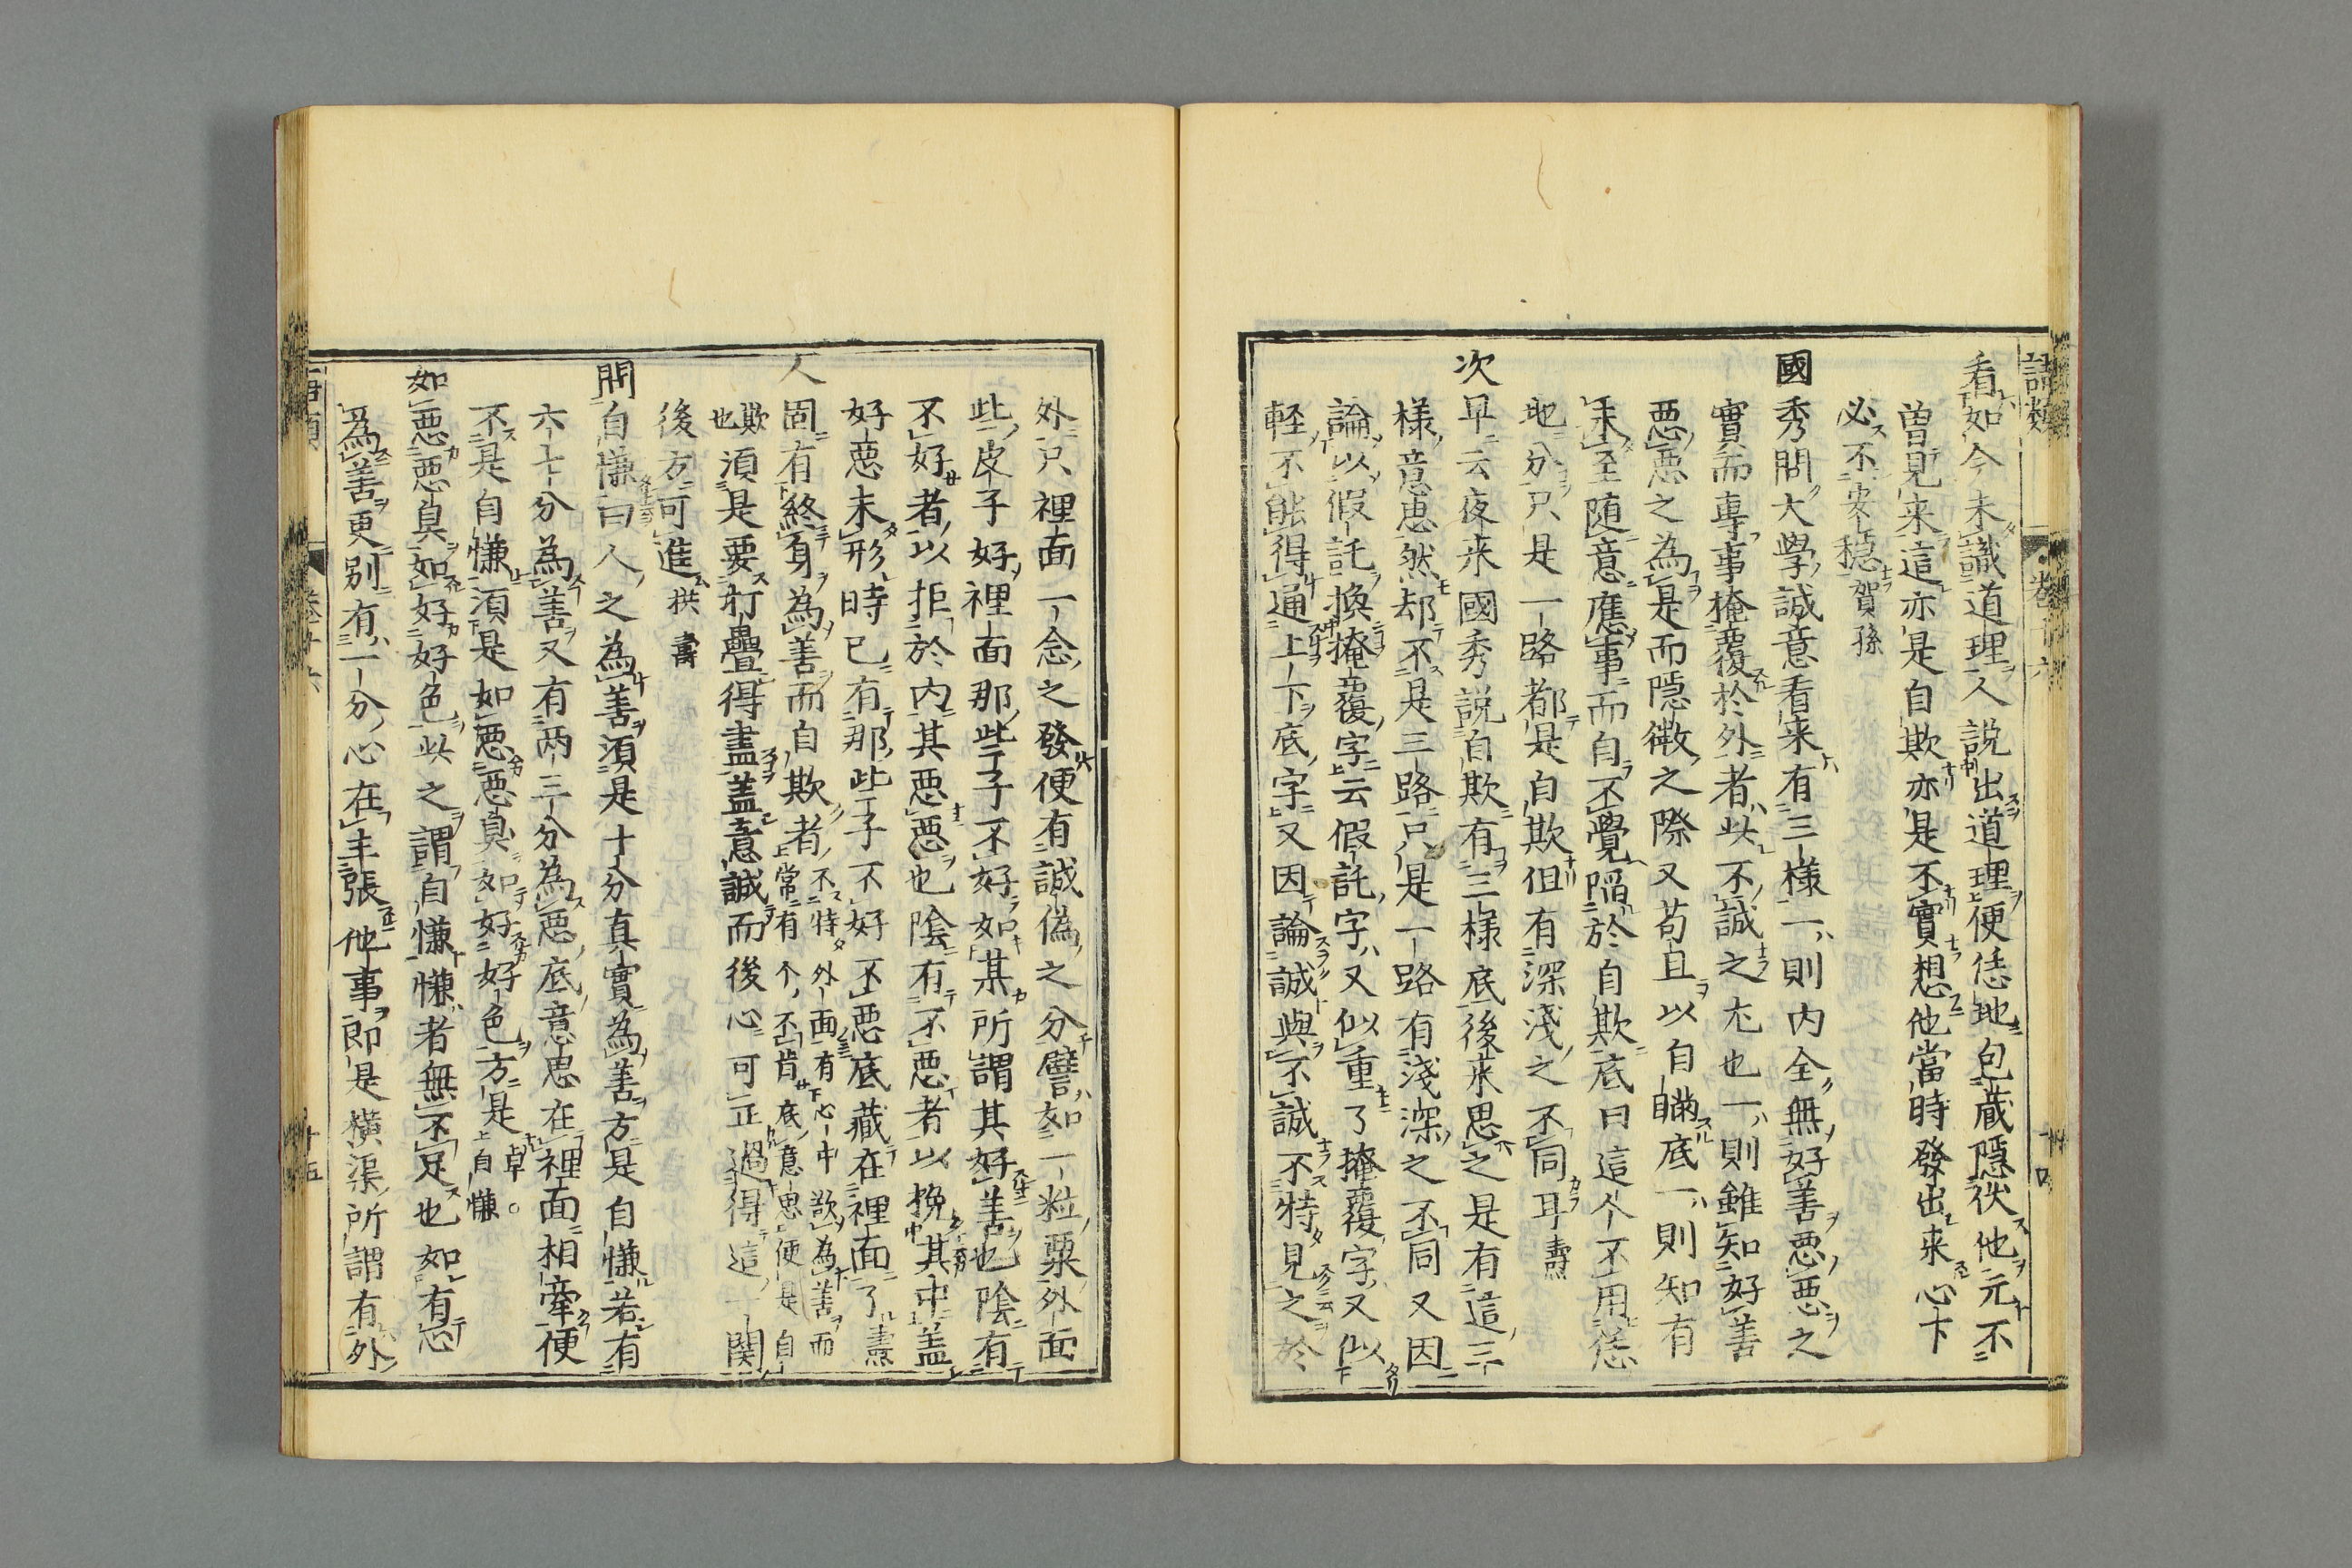 語類 卷十六 十四
看如今未識道理人說出道理便恁地包藏隱伏他元不
曾見来這亦是自欺亦是不實想他當時發出来心下
必不安穏賀孫
國秀問大學誠意看来有三様一則内全無好善惡惡之
實而專事掩覆於外者此不誠之尤也一則雖知好善
惡惡之為是而隱微之際又苟且以自瞞底一則知有
未至随意應事而自不覺陥於自欺底曰這个不用恁
地分只是一路都是自欺但有深淺之不同耳燾
次早云夜来國秀説自欺有三様底後来思之是有這三
様意思然却不是三路只是一路有淺深之不同又因
論以假託換掩覆字云假託字又似重了掩覆字又似
輕不能得通上下底字又因論誠與不誠不特見之於
外只裡面一念之發便有誠偽之分譬如一粒粟外面
些皮子好裡面那些子不好如某所謂其好善也陰有
不好者以拒於内其惡惡也陰有不惡者以挽其中盖
好惡未形時已有那些子不好不惡底藏在裡面了燾
人固有終身為善而自欺者不特外面有心中欲為善而
常有个不肯底意思便是自
欺也湏是要打疊得盡盖意誠而後心可正過得這一関
後方可進拱壽
問自慊曰人之為善湏是十分真實為善方是自慊若有
六七分為善又有两三分為惡底意思在裡面相牽便
不是自慊湏是如惡惡臭如好好色方是卓。自慊
如惡惡臭如好好色此之謂自慊慊者無不足也如有心
為善更別有一分心在主張他事即是横渠所謂有外
語類 卷十六 十五